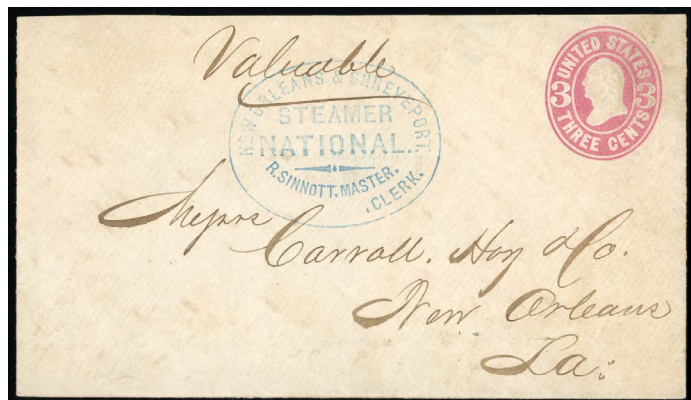 Valuable
NEW ORLEANS & SHREVEPORT.
STEAMER
NATIONAL.
R. SINNOTT. MASTER.
.CLERK.
UNITED STATES
3 3
THREE CENTS
Messrs
Carroll. Hoy & Co.
New Orleans
La: